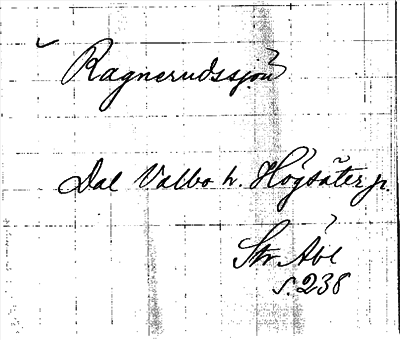 Ragnerudssjön
Dal Valbo h. Högsäter s.
Str Åbl
s. 238